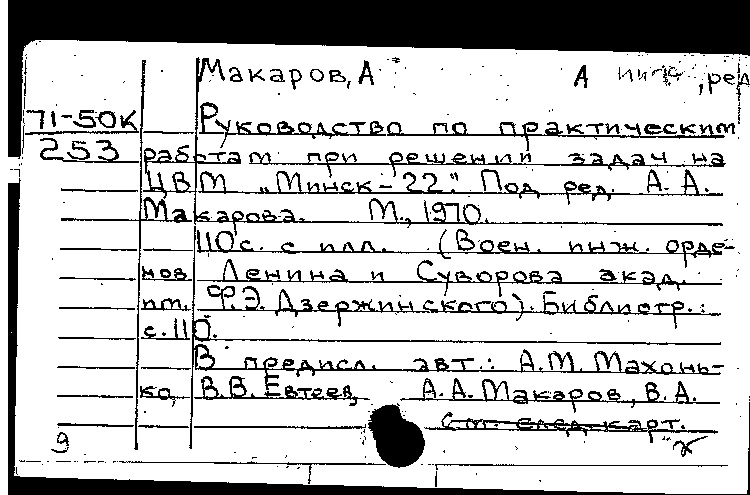 Макаров, А А ред
71-50К Руководство по практическим
253 работам при решении задач на
ЦВМ „Минск-22". Под ред. А. А.
Макарова. М., 1970.
110с. с илл. (Воен. инж. орде-
нов Ленина и Суворова акад.
им. Ф.Э. Дзержинского). Библиогр.:
с. 110.
В предисл. авт.: А.М. Махонь-
ко, В.В. Евтеев, А.А. Макаров, В.А.
См. след. карт.
9